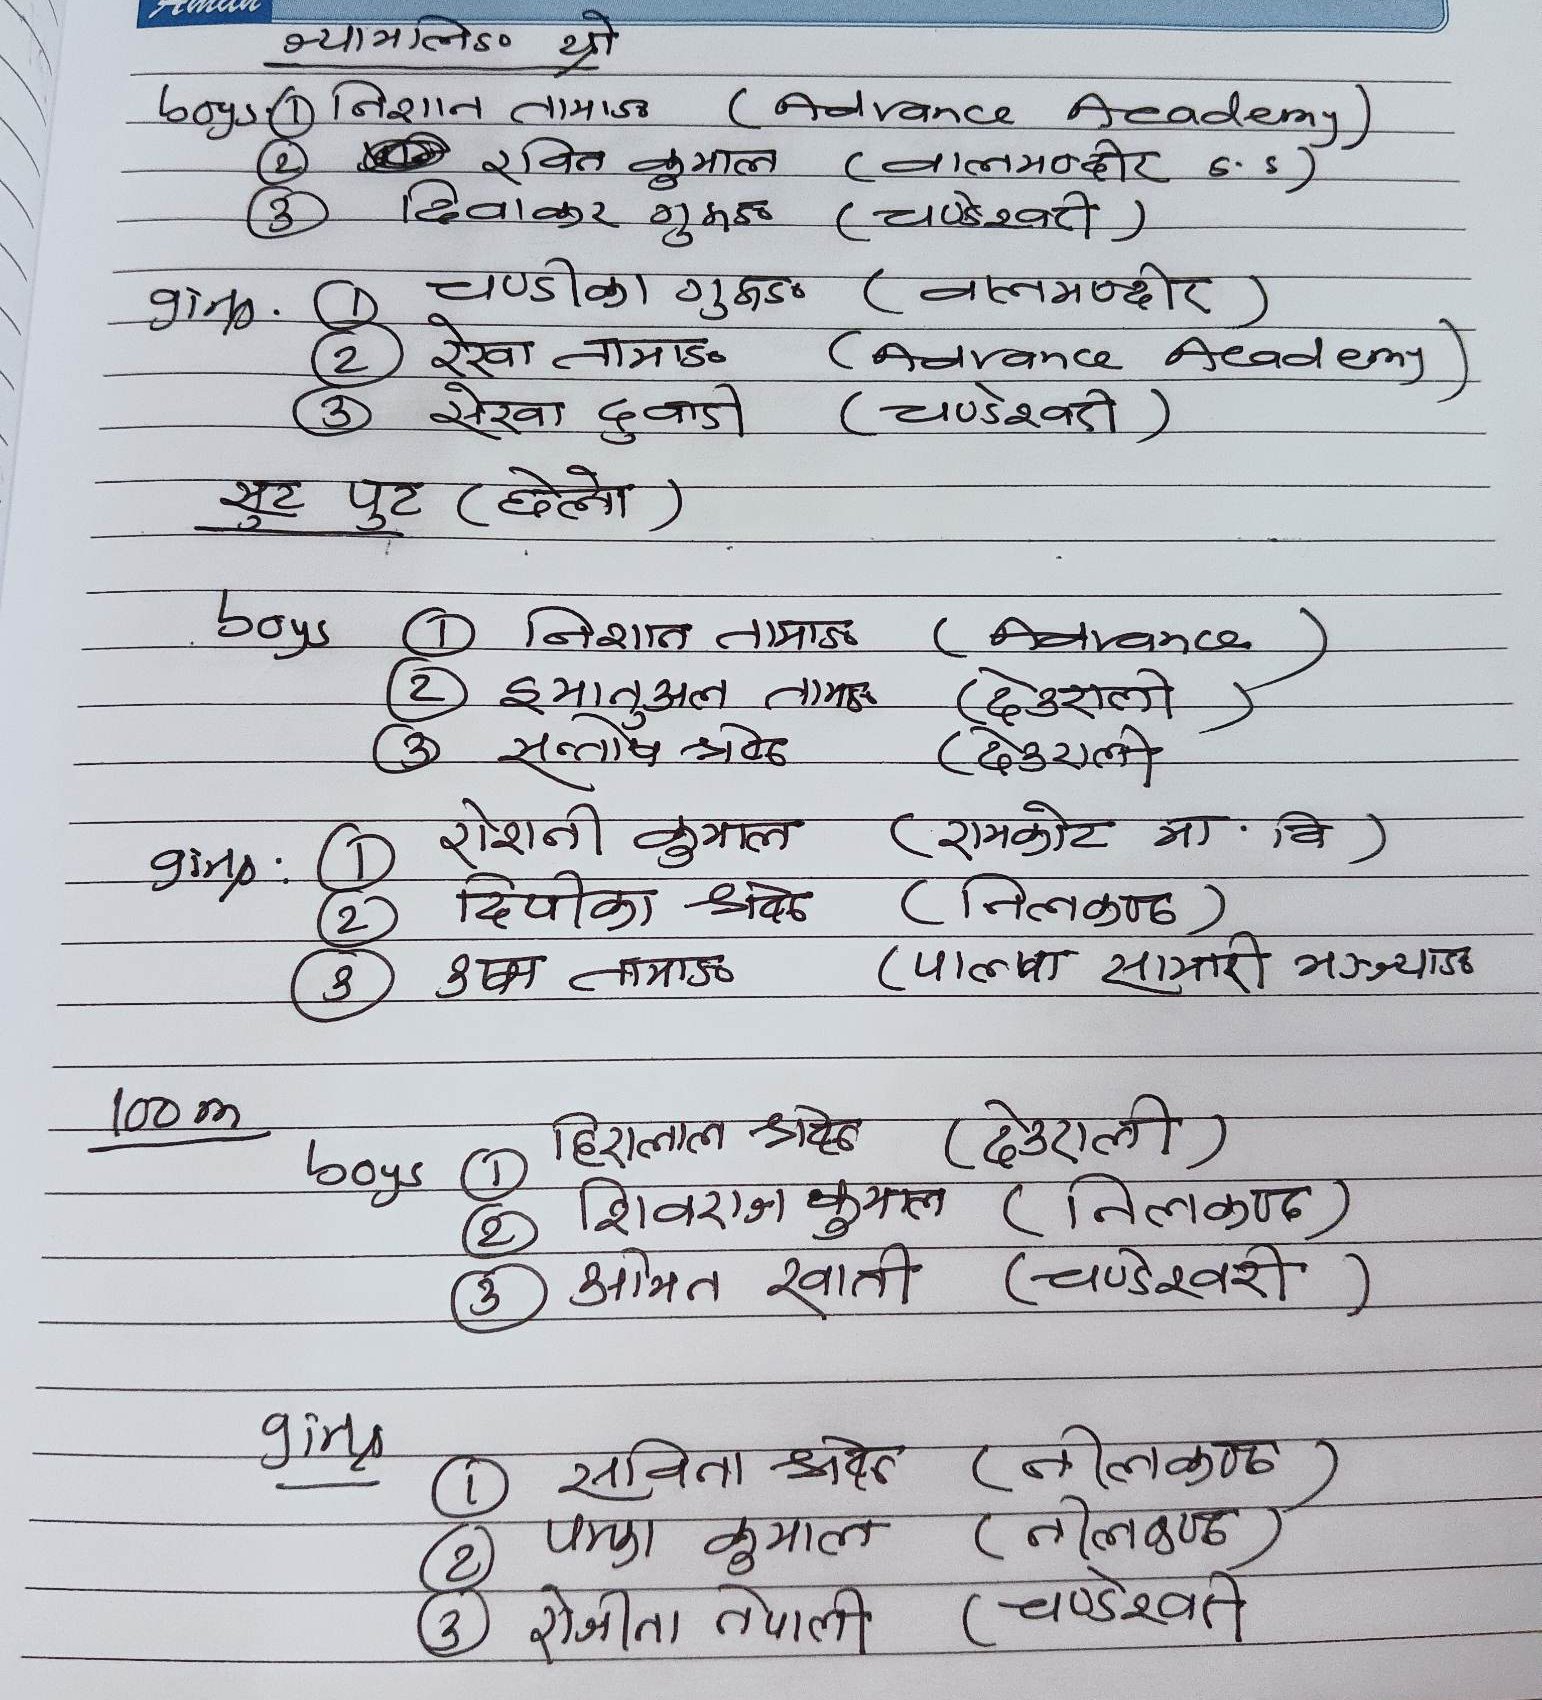 Aman
ज्याभलिङ थ्रो
boys ① निशान तामाङ (Advance Academy)
② रवित कुमाल (वालमन्दीर ई. ई)
③ दिवाकर गुरुङ (चण्डेश्वरी)
girls. ① चण्डीका गुरुङ (वालमन्दीर)
② रेखा तामाङ (Advance Academy)
③ सेरवा दुवाडी (चण्डेश्वरी)
सुट पुट (छेलो)
boys ① निशान तामाङ (Advance)
② इमानुअल तामाङ (देउराली)
③ सन्तोष श्रेष्ठ (देउराली
girls: ① रोशनी कुमाल (रामकोट मा. वि)
② दिपीका श्रेष्ठ (निलकण्ठ)
③ तामाङ (पालपा सामारी भञ्ज्याङ
100 m
boys ① हिरालाल श्रेष्ठ (देउराली)
② शिवराज कुमाल (निलकण्ठ)
③ ओमन खाती (चण्डेश्वरी)
girls
① सविता श्रेष्ठ (नीलकण्ठ)
② पम्फा कुमाल (नीलकण्ठ)
③ रोजीता नेपाली (चण्डेश्वरी